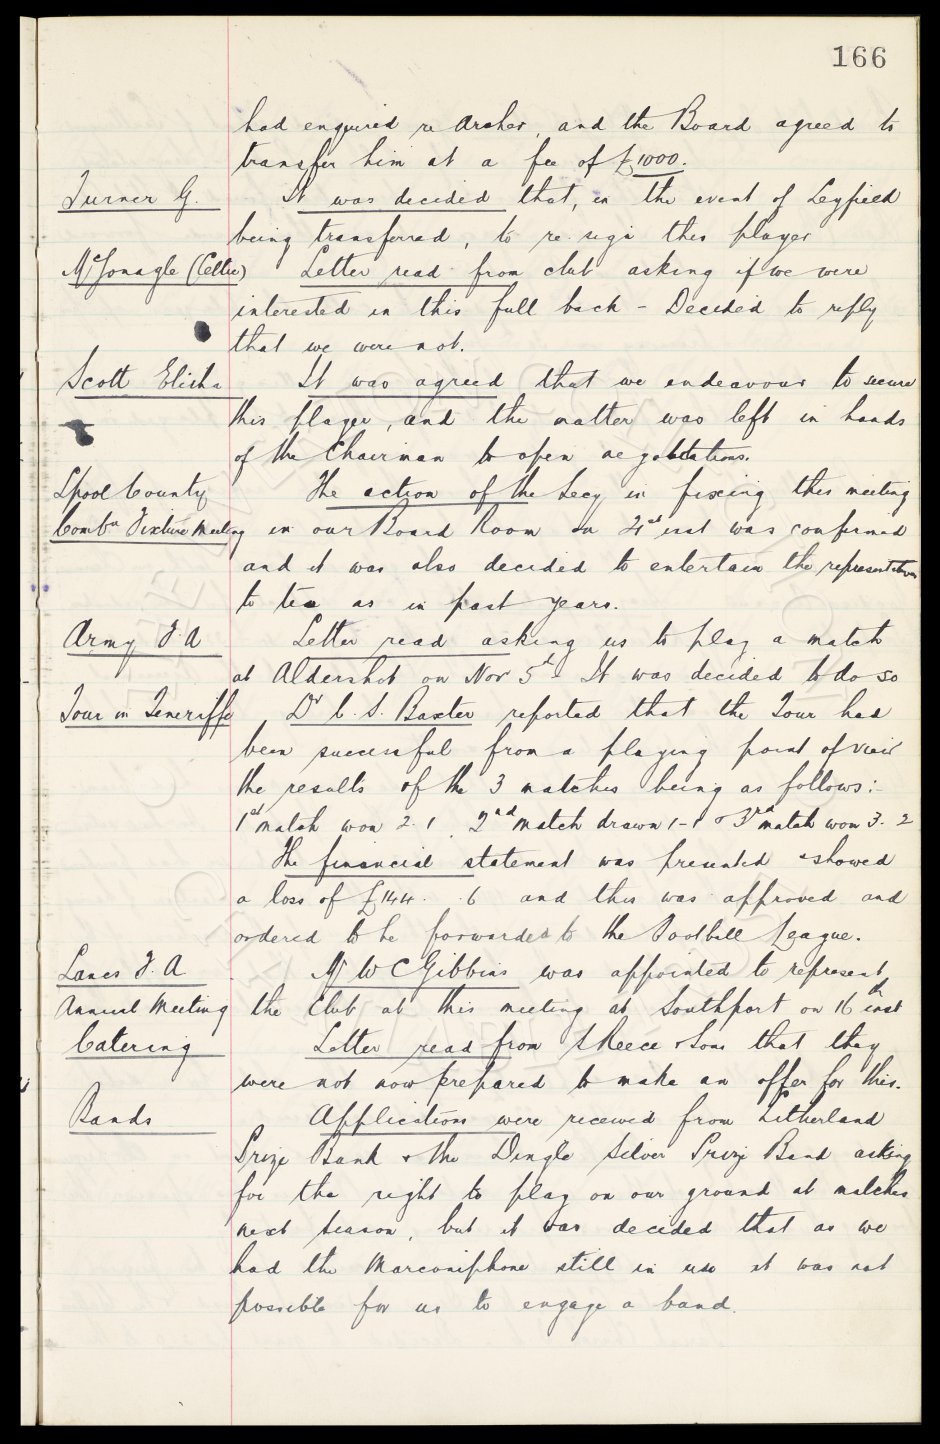 166
had enquired re Archer, and the Board agreed to
transfer him at a fee of £1000.
Turner G. It was decided that, in the event of Leyfield
being transferred, to re-sign this player
McGonagle (Celtic) Letter read from club asking if we were
interested in this full back - Decided to reply
that we were not.
Scott Elisha It was agreed that we endeavour to secure
this player, and the matter was left in hands
of the Chairman to open negotiations.
Lpool County The action of the Secy in fixing this meeting
Combn Fixture Meeting in our Board Room on inst was confirmed
and it was also decided to entertain the representatives
to tea as in past years.
Army F.A Letter read asking us to play a match
at Aldershot on Nov 5th - It was decided to do so
Tour in Teneriffe Dr C. S. Baxter reported that the Tour had
been successful from a playing point of view
the results of the 3 matches being as follows:-
1st match won 2.1, 2nd match drawn 1-1 & 3rd match won 3.2
The financial statement was presented & showed
a loss of £144. . 6 and this was approved and
ordered to be forwarded to the Football League.
Lancs F.A Mr W C Gibbins was appointed to represent
Annual Meeting the Club at this meeting at Southport on 16th inst
Catering Letter read from Reece & Sons that they
were not now prepared to make an offer for this.
Bands Applications were received from Litherland
Prize Band & the Dingle Silver Prize Band asking
for the right to play on our ground at matches
next season, but it was decided that as we
had the Marconiphone still in use it was not
possible for us to engage a band.